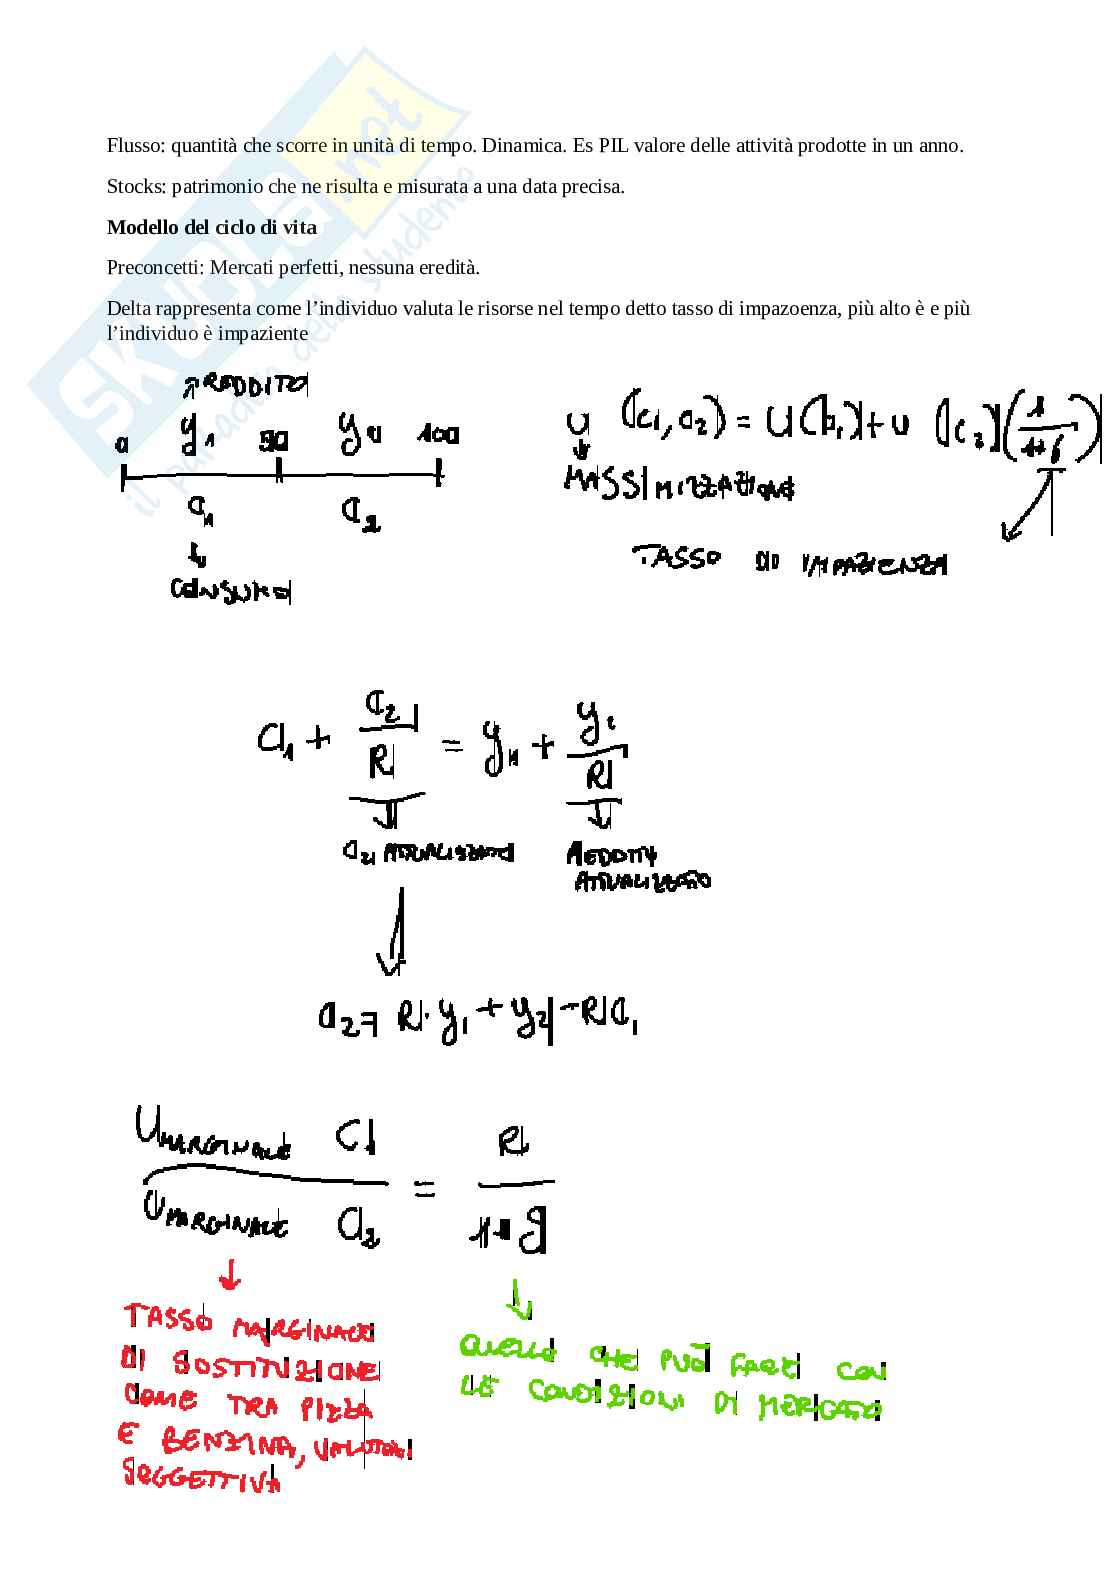 Flusso: quantità che scorre in unità di tempo. Dinamica. Es PIL valore delle attività prodotte in un anno.
Stocks: patrimonio che ne risulta e misurata a una data precisa.
Modello del ciclo di vita
Preconcetti: Mercati perfetti, nessuna eredità.
Delta rappresenta come l’individuo valuta le risorse nel tempo detto tasso di impazoenza, più alto è e più
l’individuo è impaziente
SKUOLA.net
il paradiso dello studente
REDDITO
0 y1 50 y2 100
C1 C2
CONSUMO
U (C1, C2) = U(C1) + U (C2) (1/1+δ)
MASSIMIZZAZIONE
TASSO DI IMPAZIENZA
C1 + C2/R = y1 + y2/R
C2 ATTUALIZZATO REDDITO
ATTUALIZZATO
C2 = R · y1 + y2 - RC1
UMARGINALE C1 / UMARGINALE C2 = R / 1+δ
TASSO MARGINALE
DI SOSTITUZIONE
COME TRA PIZZA
E BENZINA,
SOGGETTIVA
QUELLO CHE PUÒ FARE CON
LE CONDIZIONI DI MERCATO